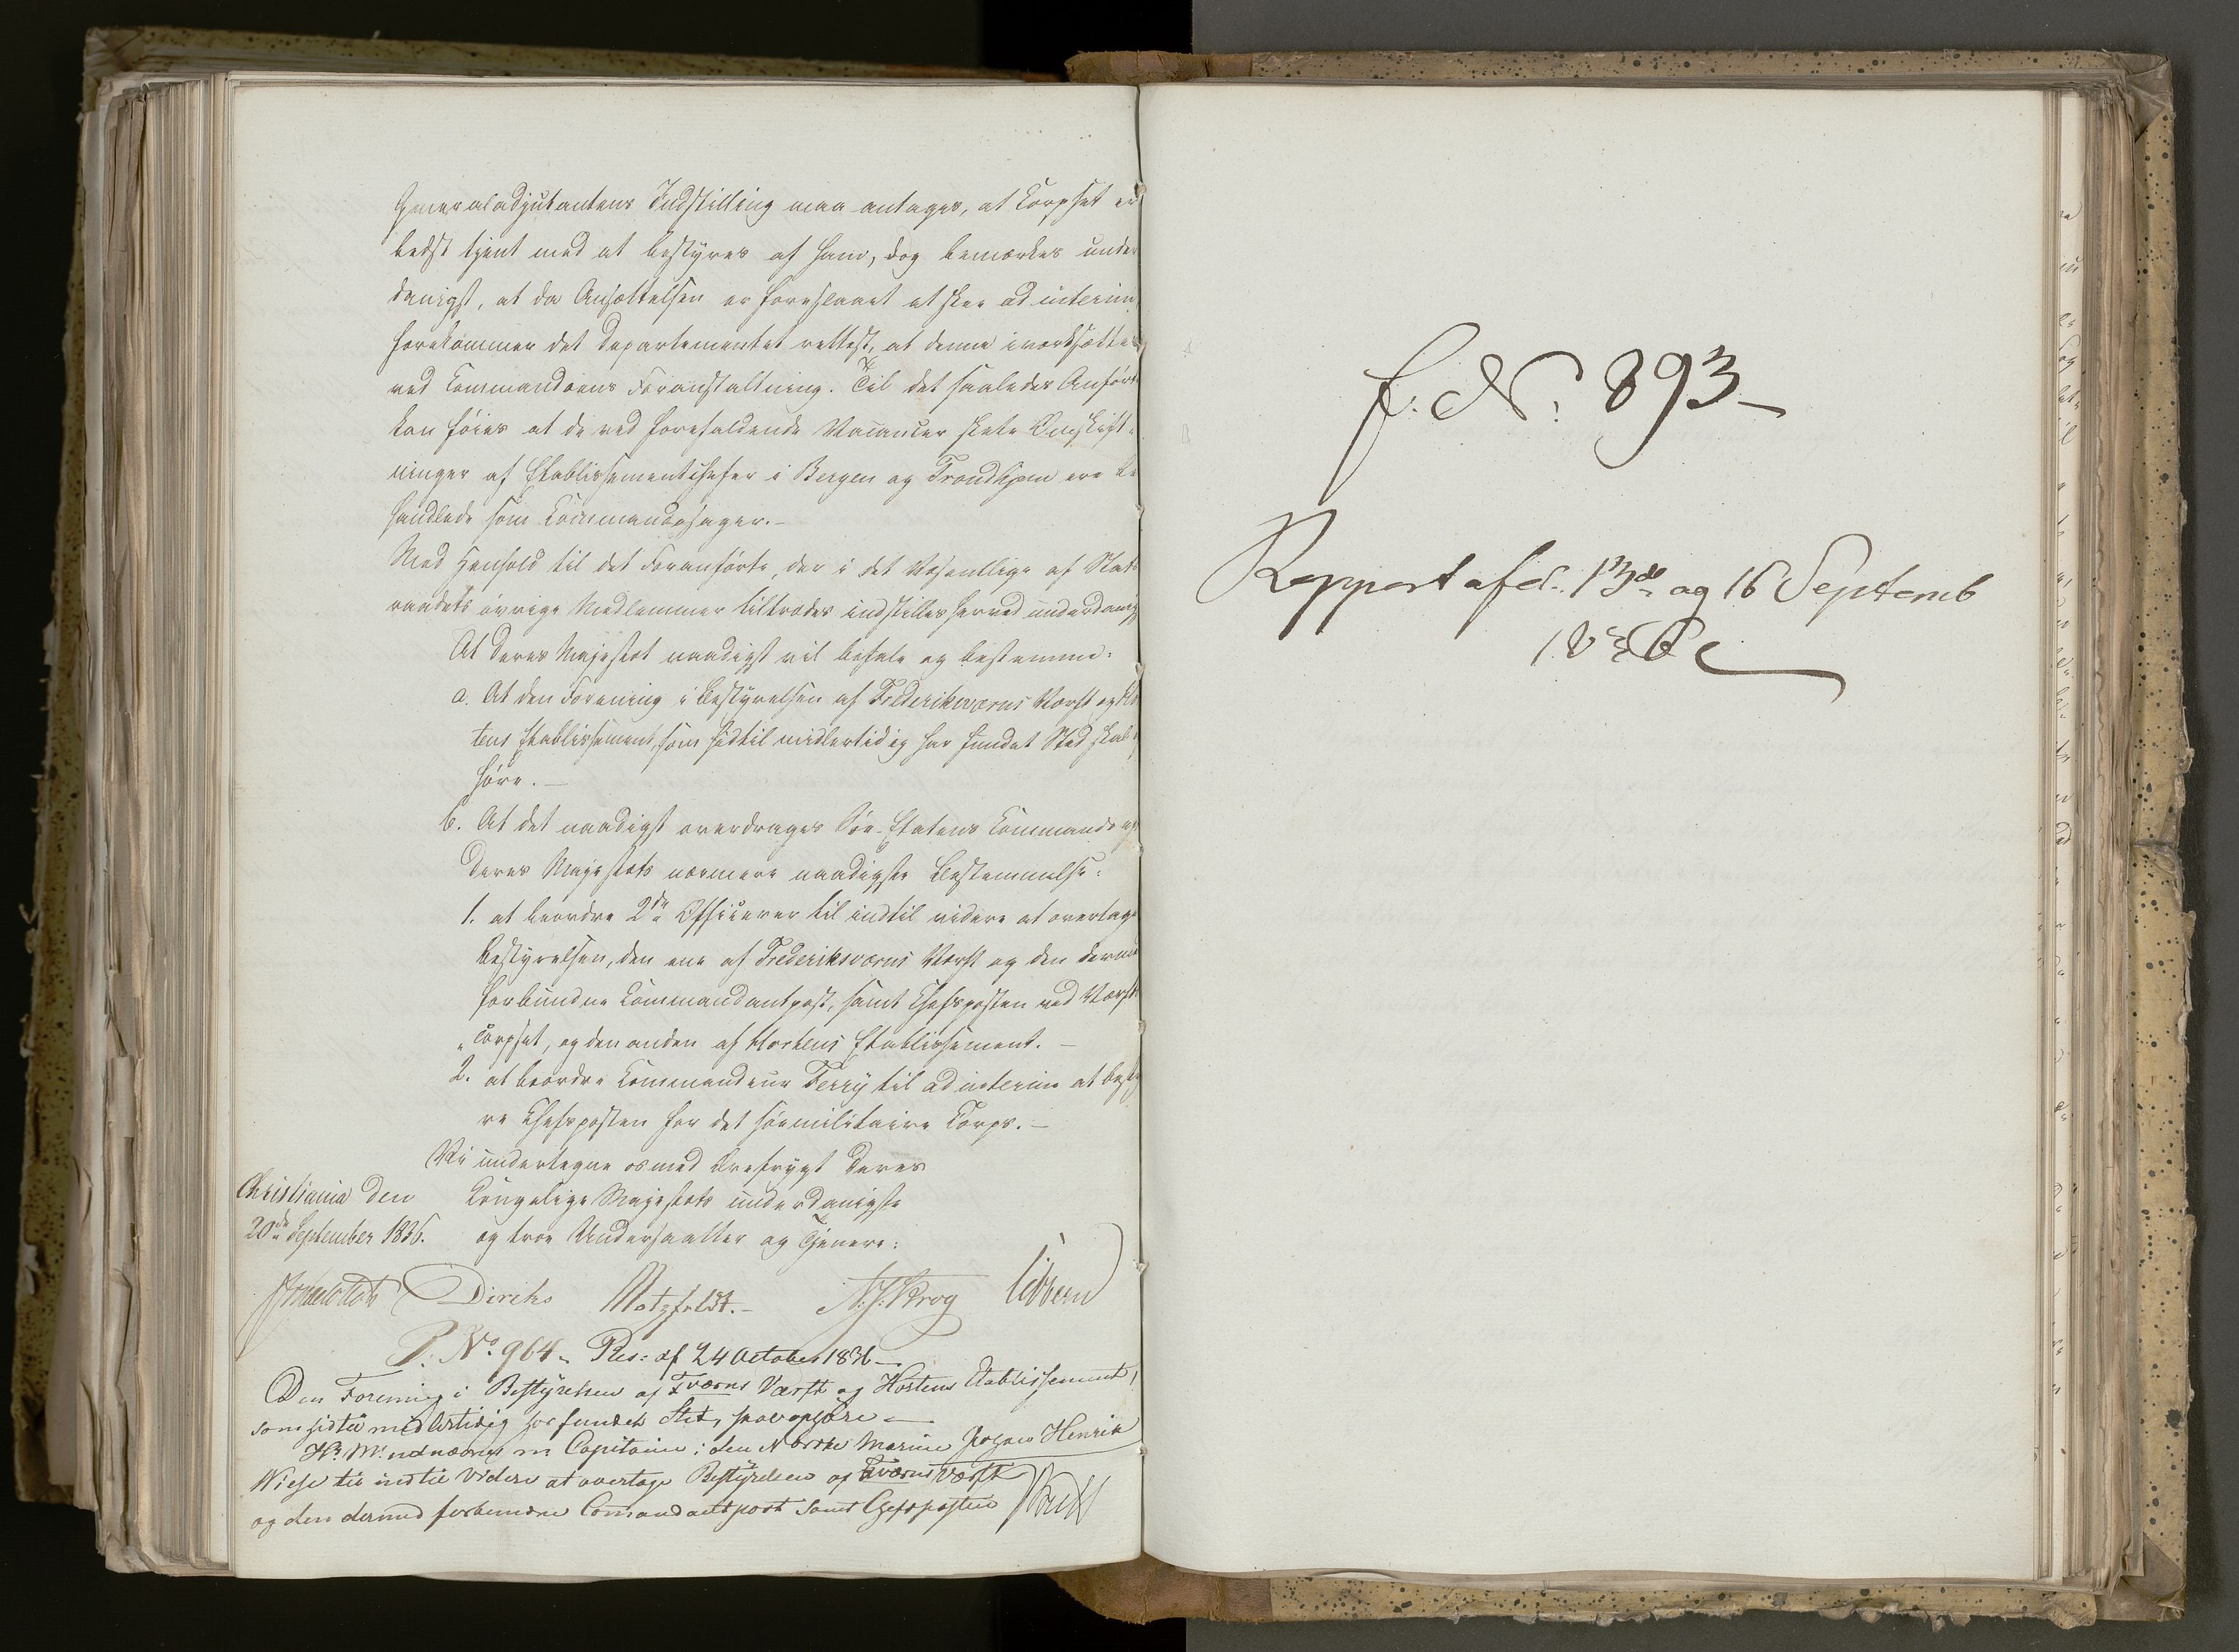 Generaladjutantens Indstilling maa antages, at Corpset er
bedst tjent med at bestyres af ham, dog bemærkes under
danigst, at da Ansættelsen er foreslaaet at skee ad interim,
forekommer det Departementet rettest, at denne iværksættes
ved Commandoens Foranstaltning. Til det saaledes Anførte
kan føies at de ved forefaldende Vacancer skete Omskift-
ninger af Etablissementschefer i Bergen og Trondhjem ere be
handlede som Commandosager.-
Med Henhold til det Foranførte, der i det Væsentlige af Stats
raadets øvrige Medlemmer tiltrædes indstilles herved underdanigst
At Deres Majestæt naadigst vil befale og bestemme:
a. At den Forening i Bestyrelsen af Frederiksværns Værft og Hor
tens Etablissement, som hidtil midlertidig har fundet Sted skal op
høre. —
b. At det naadigst overdrages Søe-Etatens Commando efter
Deres Majestæts nærmere naadigste Bestemmelse:
1. at beordre 2de Officerer til indtil videre at overtage
Bestyrelsen, den ene af Frederiksværns Værft og den dermed
forbundne Commandantpost, samt Chefsposten ved Værfts
"Corpset, og den anden af Hortens Etablissement. —
2. at beordre Commandeur Ferry til ad interim at besty
re Chefsposten for det søemilitaire Corps. —
Vi undertegne os med Ærefrygt Deres
Christiania den Kongelige Majestæts underdanigste
20de September 1836. og troe Undersaatter og Tjenere:
Diriks Motzfeldt.- N. J. Krog Vibe
P. No. 964. Res: af 24 October 1836 —
Den Forening i Bestyrelsen af Fværns Værft og Hortens Etablissement,
som hidtil midlertidig har fundet Sted, skal ophøre —
H. M. udnævner Capitain i den Norske Marine Johan Henrik
Wiese til indtil Videre at overtage Bestyrelsen af Fværns Værft
og den dermed forbundne Comandantpost samt Chefsposten
f. N. 893 —
Rapport af d. 13de og 16 Septemb
1836